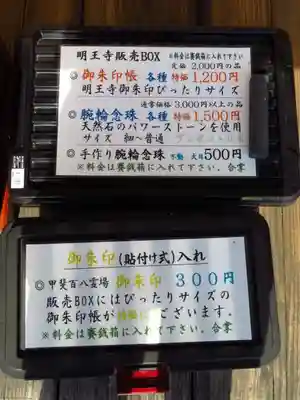 明王寺販売BOX ※料金は賽銭箱に入れて下さい
定価 2,000円の品
◎御朱印帳 各種 特価 1,200円
明王寺御朱印ぴったりサイズ
通常価格 3,000円以上の品
◎腕輪念珠 各種 特価 1,500円
天然石のパワーストーンを使用
サイズ 細〜普通
◎手作り腕輪念珠 500円
※料金は賽銭箱に入れて下さい。合掌
御朱印(貼付け式)入れ
◎甲斐百八霊場 御朱印 300円
販売BOXにはぴったりサイズの
御朱印帳が特価にてございます。
※料金は賽銭箱に入れて下さい。合掌